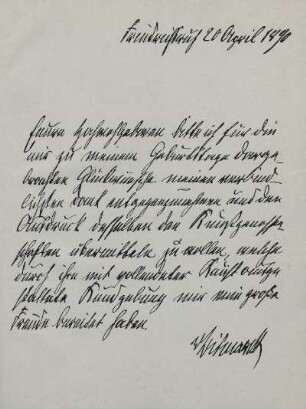 Friedrichsruh 20 April 1890
Euere Hochwohlgeboren bitte ich für die
mir zu meinem Geburtstage darge
brachten Glückwünsche meinen verbind
lichsten Dank entgegenzunehmen und den
Ausdruck desselben den Kunstgenosse
schaften übermitteln zu wollen, welche
durch ihre mit vollendeter Kunst ausge
stattete Kundgebung mir eine große
Freude bereitet haben
v Bismarck